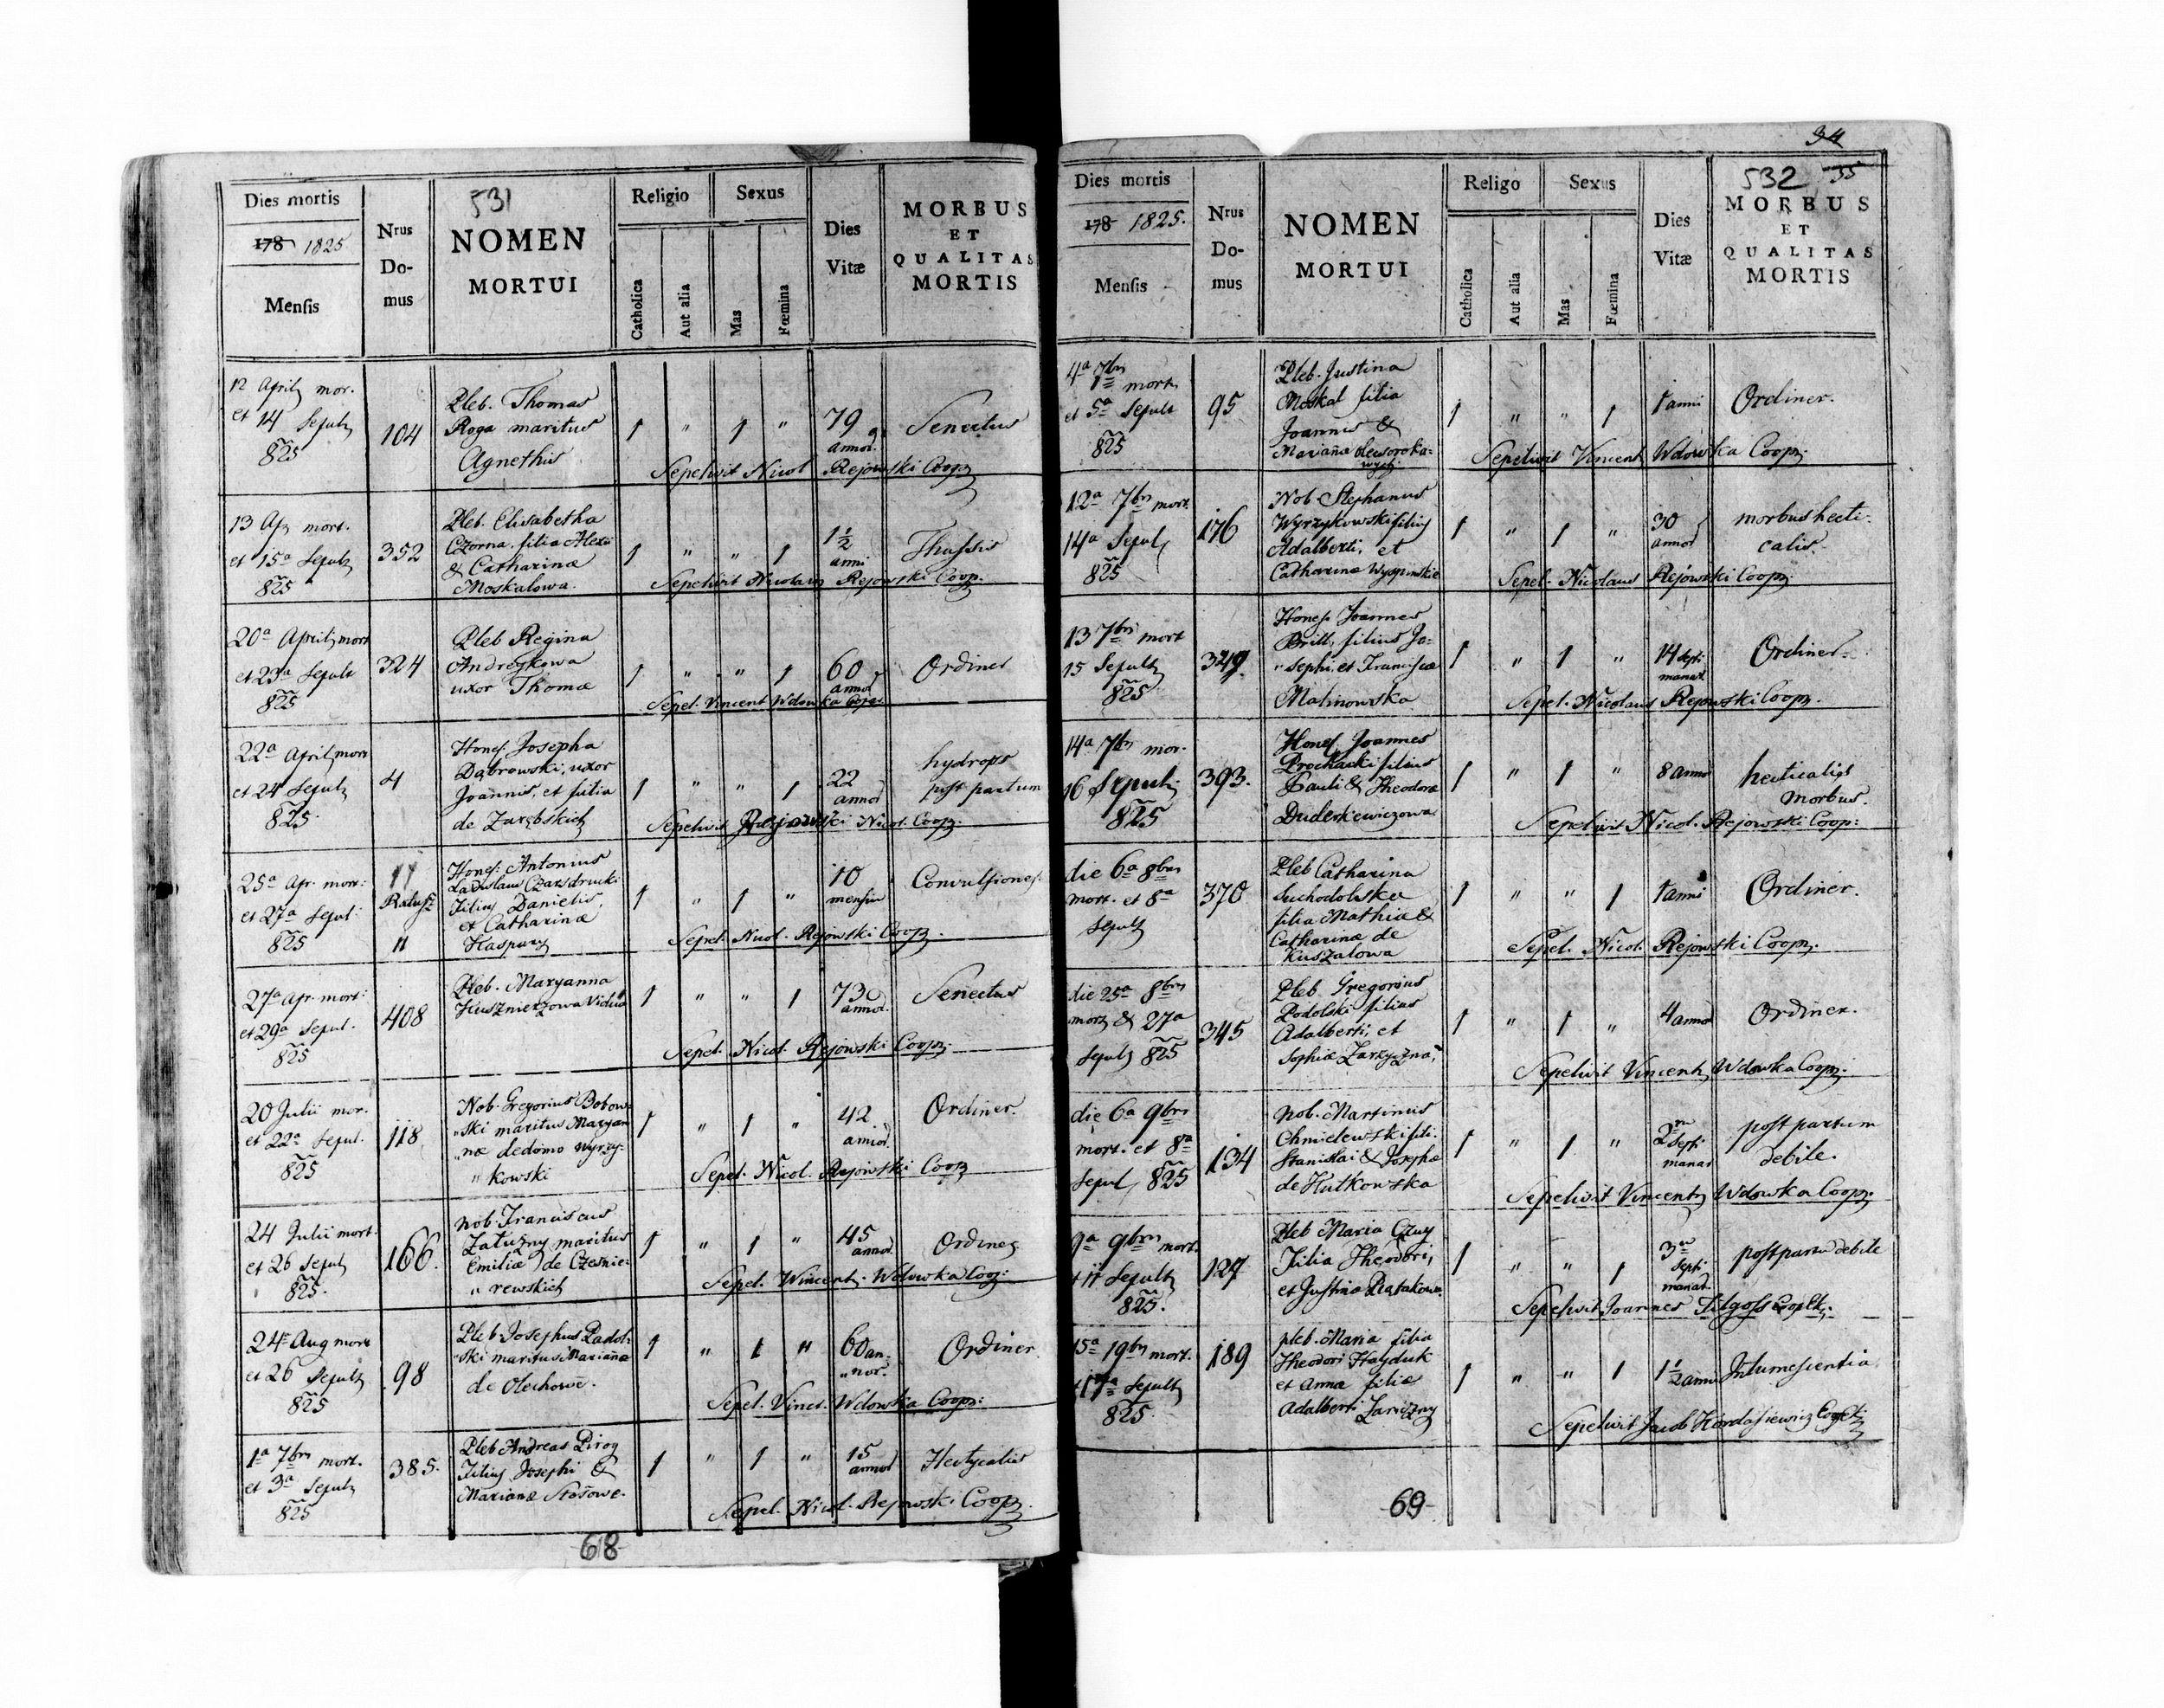 531
Dies mortis
178 1825
Mensis
Nrus
Do-
mus
NOMEN
MORTUI
Religio
Catholica
Aut alia
Sexus
Mas
Fœmina
Dies
Vitæ
MORBUS
ET
QUALITAS
MORTIS
12 April mor.
et 14 Sepult
825
104
Pleb. Thomas
Roga maritus
Agnethis
1 " 1 "
79
annor.
Senectus
Sepelivit Nicol Rejowski Coop
13 Ap mort.
et 15a Sepult
825
352
Pleb. Elisabetha
Czorna filia Alexii
& Catharinæ
Moskalowa.
1 " " 1
1½
anni
Thussis
Sepelivit Nicolaus Rejowski Coop.
20a April mort
et 23a Sepult
825
324
Pleb Regina
Andreykowa
uxor Thomæ
1 " " 1
60
annor
Ordiner
Sepel. Vincent Wdowka Coper
22a April mort
et 24 Sepult
825.
4
Hones. Josepha
Dąbrowski, uxor
Joannis, et filia
de Zarębskich
1 " " 1
22
annor
hydrops
post partum
Sepelivit Rejowski Nicol. Coop.
25a Apr. mort:
et 27a Sepul:
825
11
Ratusz
11
Hones: Antonius
Ladislaus Czazdrucki
Filius Danielis,
et Catharinæ
Kaspary
1 " 1 "
10
mensiu
Convulsiones.
Sepel. Nicol. Rejowski Coop.
27a Apr. mort:
et 29a Sepul.
825
408
Pleb. Maryanna
Kusznierzowa Vidua
1 " " 1
73
annor.
Senectus
Sepel. Nicol. Rejowski Coop.
20 Julii mor.
et 22a Sepul.
825
118
Nob. Gregorius Bobow
"ski maritus Maryan
"næ de domo Wyrzy-
" kowski
1 " 1 "
42.
annor.
Ordiner.
Sepel. Nicol. Rejowski Coop
24 Julii mort.
et 26 Sepul
825.
166.
Nob. Franciscus
Załużny maritus
Emiliæ de Czesnie-
" rewskich
1 " 1 "
45
annor.
Ordiner
Sepel. Wincent. Wdowka Coop:
24a Aug mort
et 26 Sepult
825
98
Pleb. Josephus Padol-
"ski maritus Mariannæ
de Olechowe.
1 " 1 "
60 an-
"nor.
Ordiner
Sepel. Vinct. Wdowka Coop:
1a 7bris mort.
et 3a Sepult
825
385.
Pleb Andreas Pirog
Filius Josephi &
Marianæ Stasowe.
1 " 1 "
15
annor
Hectycalis
Sepel. Nicol. Rejowski Coop.
68
34
532 35
Dies mortis
178 1825.
Mensis
Nrus
Do-
mus
NOMEN
MORTUI
Religo
Catholica
Aut alia
Sexus
Mas
Fœmina
Dies
Vitæ
MORBUS
ET
QUALITAS
MORTIS
4a 7bris
mort.
et 5a Sepult
825
95
Pleb. Justina
Moskal filia
Joannis &
1 " " 1
1 anni
Ordiner.
Sepelivit Vincent Wdowka Coop.
12a 7bris mort.
14a Sepul
825
176
Nob. Stephanus
Wyrzykowski filius
Adalberti, et
Catharinæ Wyspinskie
1 " 1 "
30
annor
morbus hecti-
calis.
Sepel. Nicolaus Rejowski Coop.
13 7bris mort
15 Sepult
825
349.
Hones. Joannes
Brill, filius Jo-
"sephi, et Franciscæ
Malinowska
1 " 1 "
14 septi
manar.
Ordiner.
Sepel. Nicolaus Rejowski Coop.
14a 7bris mor.
16 Sepult
825
393.
Hones. Joannes
Prochacki filius
Pauli & Theodoræ
Duderkiewiczowa
1 " 1 "
8 annor
hecticalis
morbus.
Sepelivit Nicol. Rejowski Coop:
die 6a 8bris
mort. et 8a
sepult
370
Pleb Catharina
Suchodolska
filia Mathiæ &
Catharinæ de
Kuszalowa
1 " " 1
1 anni
Ordiner.
Sepel. Nicol. Rejowski Coop.
die 25a 8bris
mort & 27a
Sepult 825
345
Pleb. Gregorius
Podolski filius
Adalberti, et
Sophiæ Zarzyczna,
1 " 1 "
4 annor
Ordiner.
Sepelivit Vincent Wdowka Coop.
die 6a 9bris
mort. et 8a
Sepul 825
134
Nob. Martinus
Chmielewski fili.
Stanislai & Josephæ
de Hutkowska
1 " 1 "
2m
Septi
manar
post partum
debile.
Sepelivit Vincent Wdowka Coop.
9a 9bris mort.
et 11 Sepult
825.
127
Pleb Maria Czuy
Filia Theodori,
et Justinæ Ratakowa
1 " " 1
3m
Septi
manar.
post partu debile
Sepelivit Joannes
15a 9bris mort.
et 17a Sepult
825.
189
Pleb. Maria filia
Theodori Hayduk
et Annæ filiæ
Adalberti Zariczny
1 " " 1
1½ anni
Intumescentia
Sepelivit Jacob
69